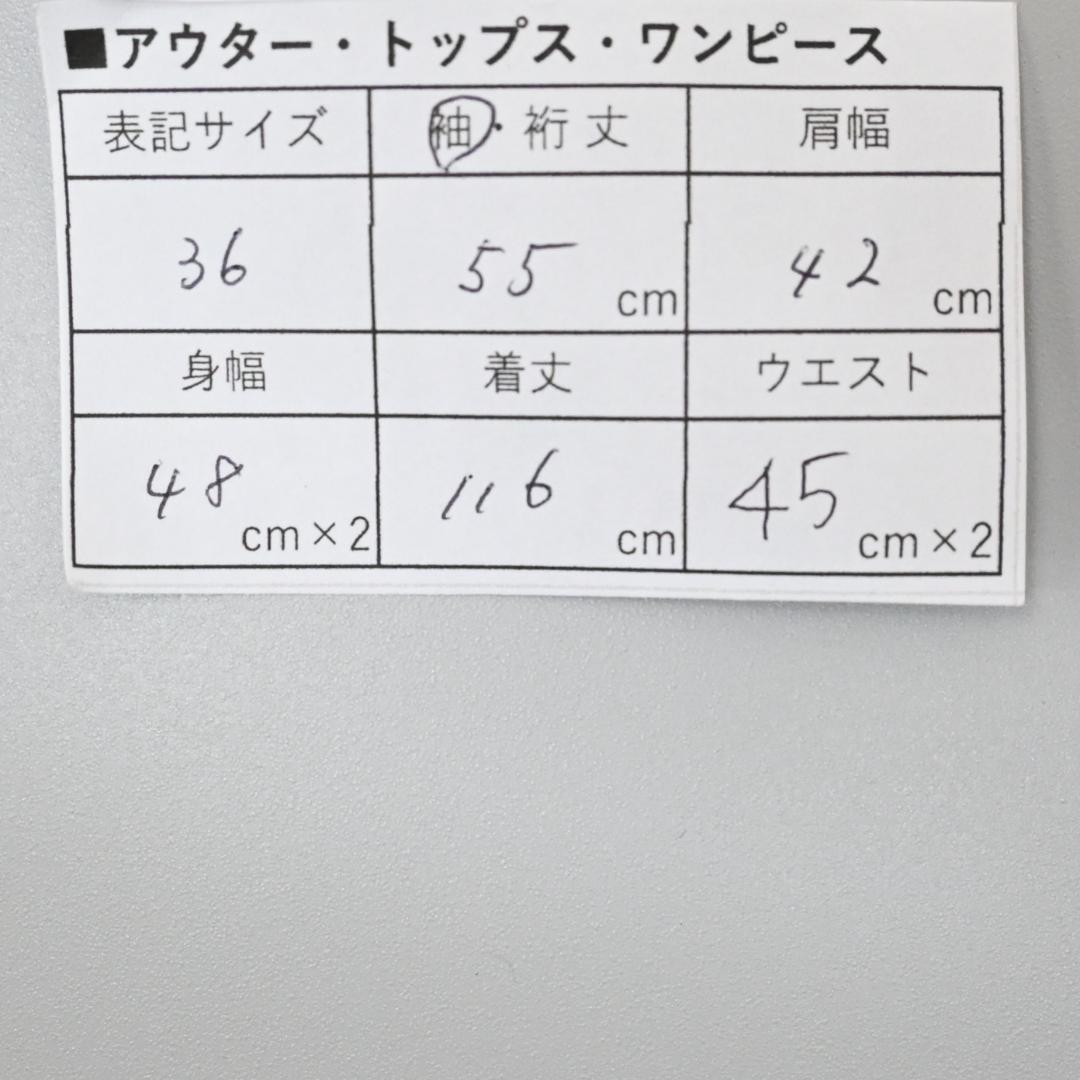 ■アウター・トップス・ワンピース
表記サイズ 袖・裄丈 肩幅
36 55 cm 42 cm
身幅 着丈 ウエスト
48 cm×2 116 cm 45 cm×2